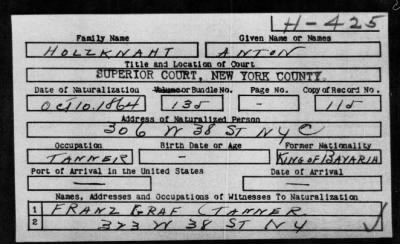 H-425
Family Name Given Name or Names
HOLZKNAHT ANTON
Title and Location of Court
SUPERIOR COURT, NEW YORK COUNTY.
Date of Naturalization Volume or Bundle No. Page No. Copy of Record No.
OCT 10. 1864 135 - 115
Address of Naturalized Person
306 W 38 ST NYC
Occupation Birth Date or Age Former Nationality
TANNER - KING OF BAVARIA
Port of Arrival in the United States Date of Arrival
— —
Names, Addresses and Occupations of Witnesses To Naturalization
1 FRANZ GRAF (TANNER
2 323 W 38 ST NY